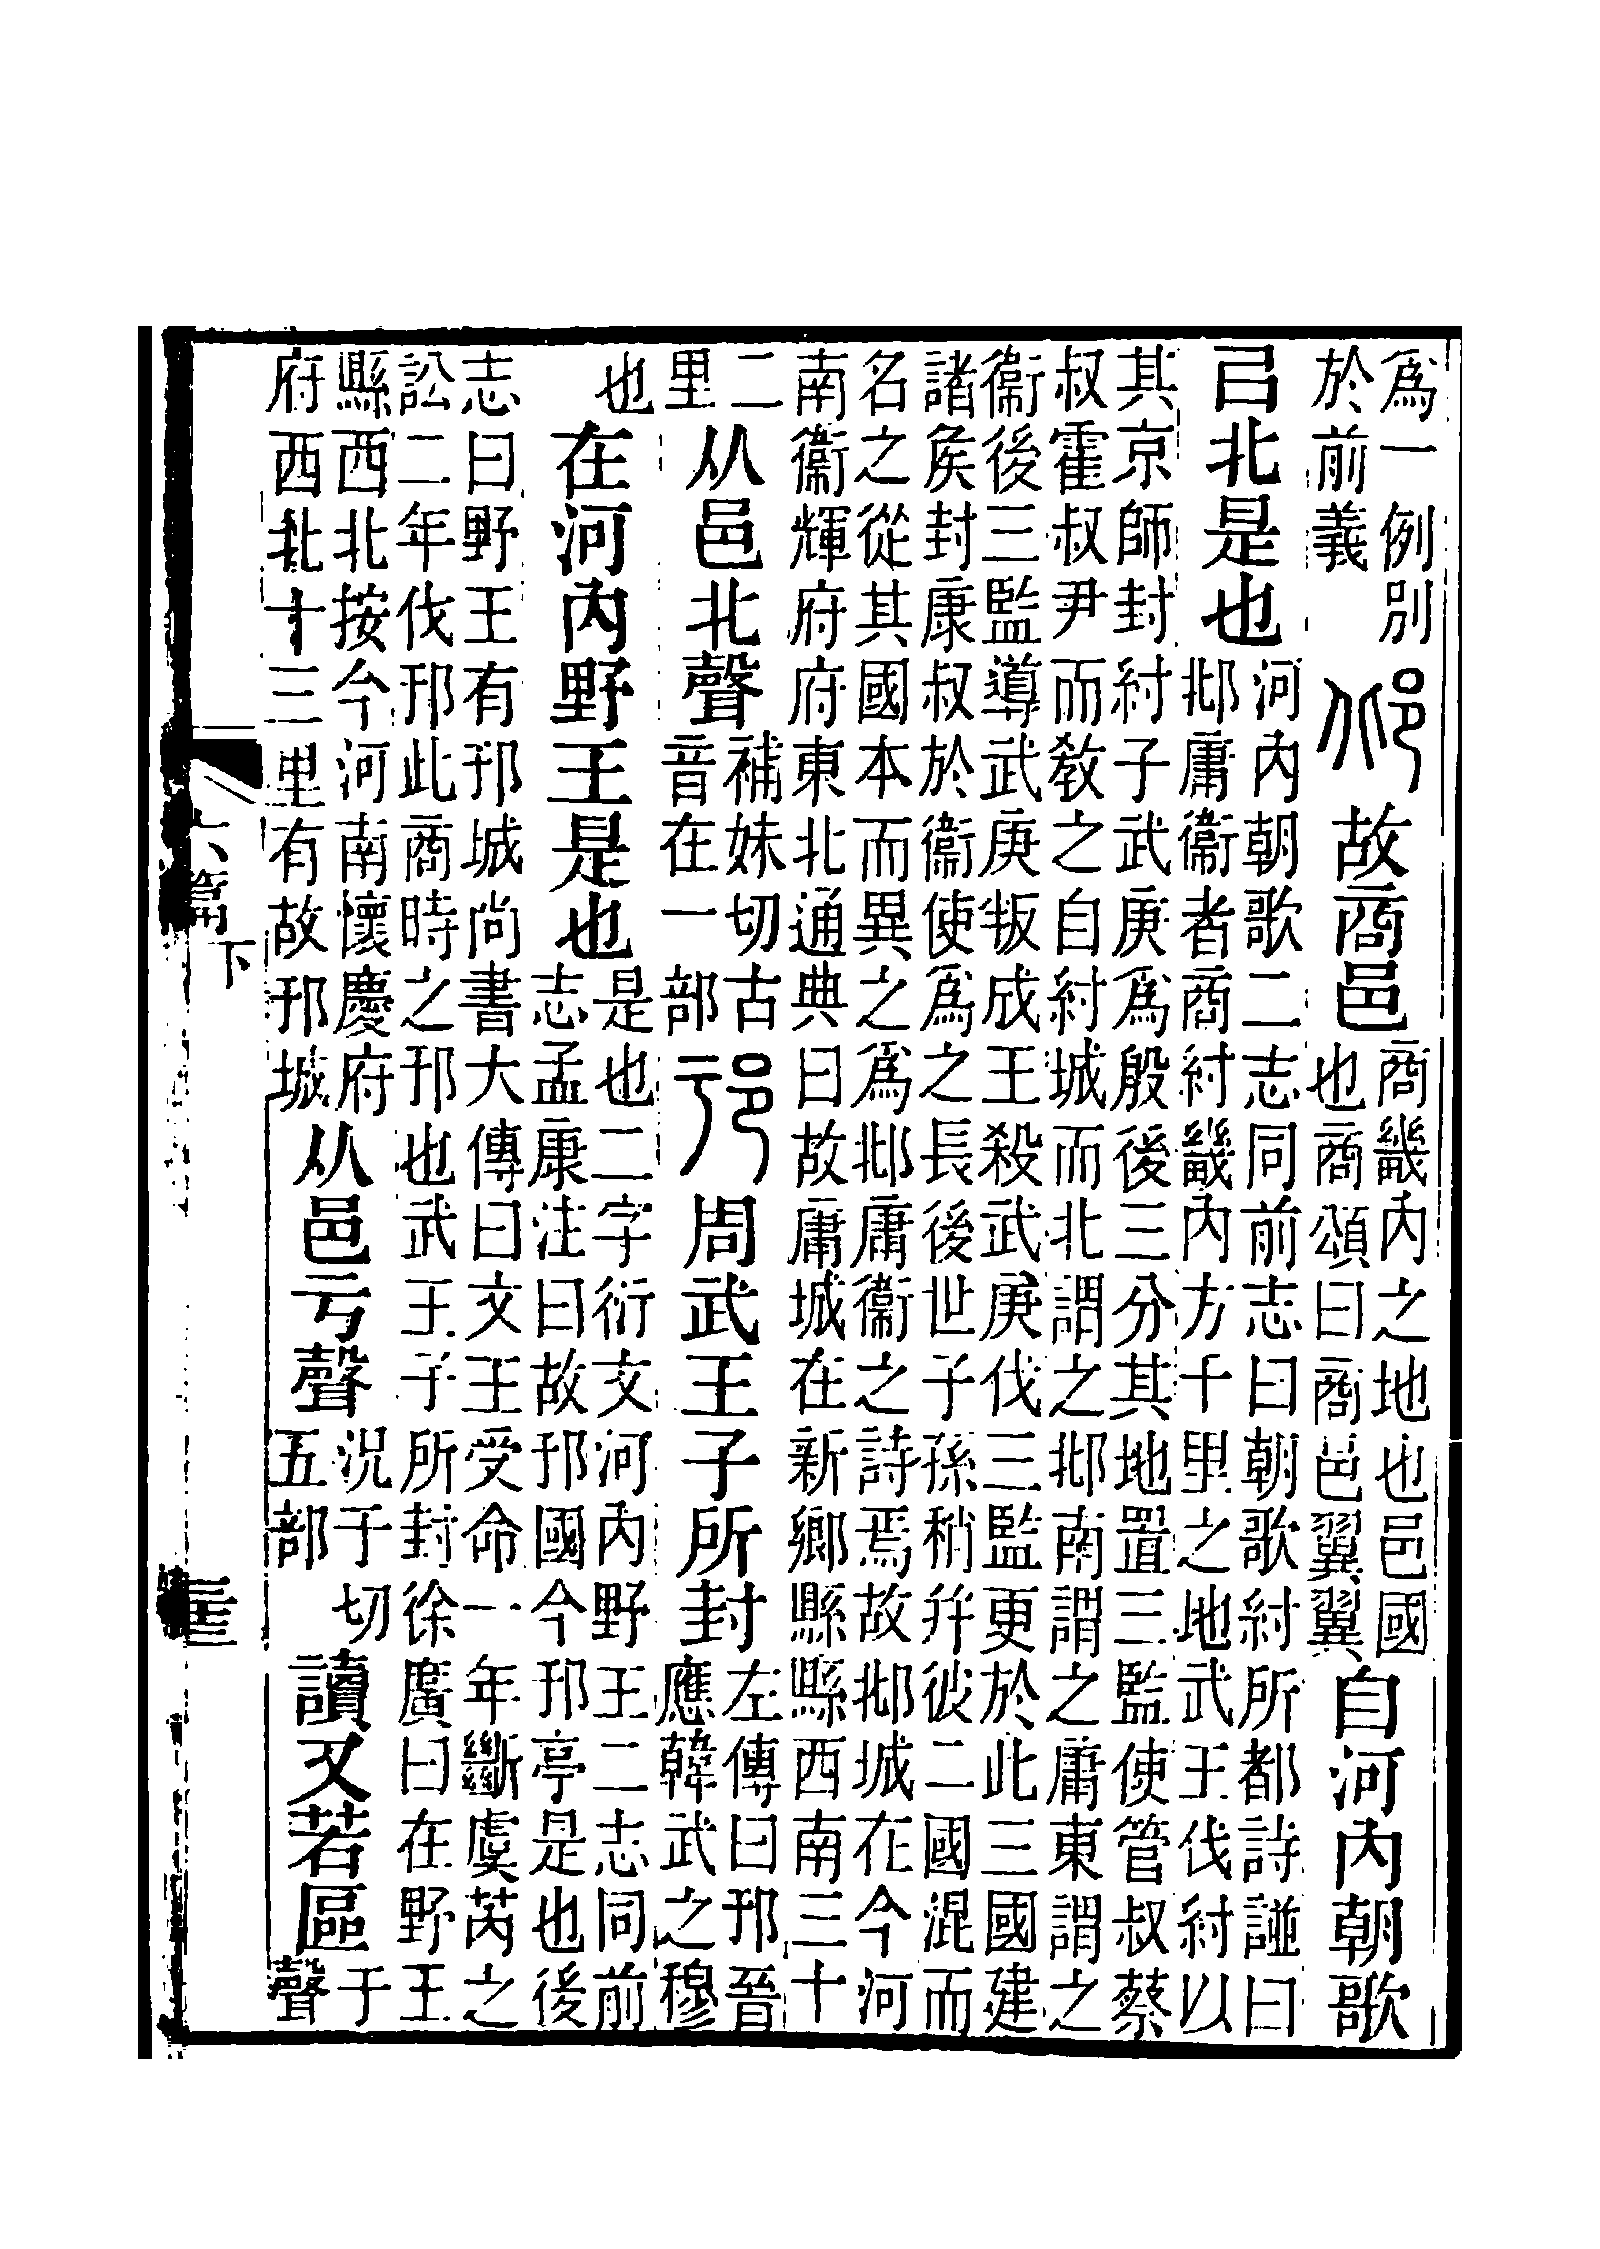 爲一例別
於前義
邶
故商邑
商畿內之地也邑國
也商頌曰商邑翼翼
自河內朝歌
㠯北是也
河內朝歌二志同前志曰朝歌紂所都詩譜曰
邶庸衞者商紂畿內方千里之地武王伐紂以
其京師封紂子武庚爲殷後三分其地置三監使管叔蔡
叔霍叔尹而敎之自紂城而北謂之邶南謂之庸東謂之
衞後三監導武庚叛成王殺武庚伐三監更於此三國建
諸矦封康叔於衞使爲之長後世子孫稍幷彼二國混而
名之從其國本而異之爲邶庸衞之詩焉故邶城在今河
南衞輝府府東北通典曰故庸城在新鄉縣縣西南三十
二
里
从邑北聲
補妹切古
音在一部
邘
周武王子所封
左傳曰邘晉
應韓武之穆
也
在河內野王是也
是也二字衍文河內野王二志同前
志孟康注曰故邘國今邘亭是也後
志曰野王有邘城尚書大傳曰文王受命一年斷虞芮之
訟二年伐邘此商時之邘也武王子所封徐廣曰在野王
縣西北按今河南懷慶府
府西北十三里有故邘城
从邑亏聲
況于切
五部
讀又若區
于
聲
六篇下